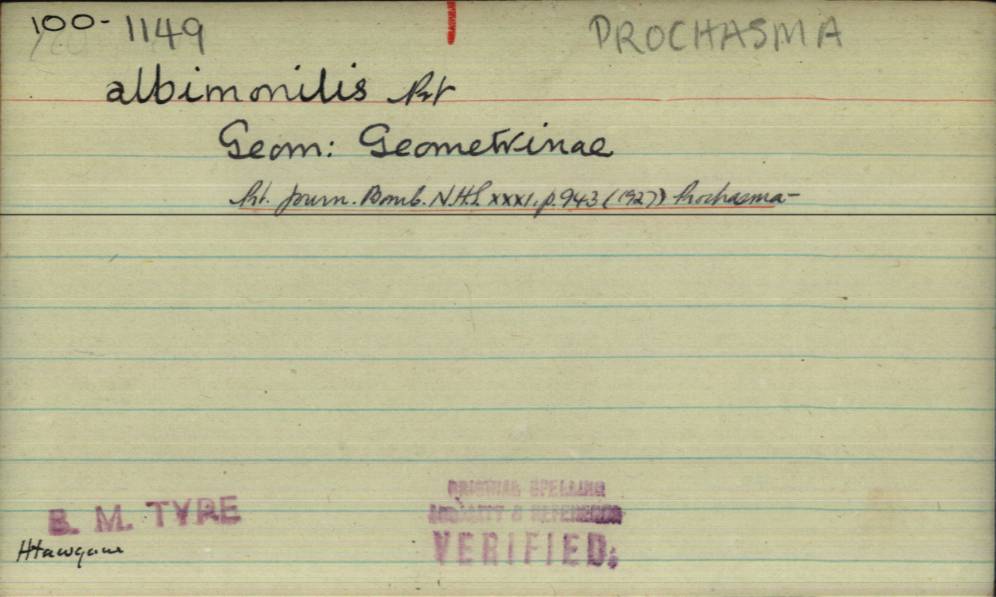 100-1149
PROCHASMA
albimonilis Prt
Geom: Geometrinae
Prt. Journ. Bomb. N.H.S. xxxi. p. 943 (1927) Prochasma-
B. M. TYPE
Htawgaw
ORIGINAL SPELLING
LOCALITY & REFERENCE
VERIFIED.